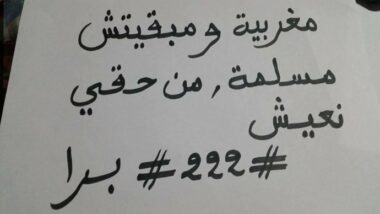 مغربية ومبقيتش
مسلمة, من حقي
نعيش
#222# برا